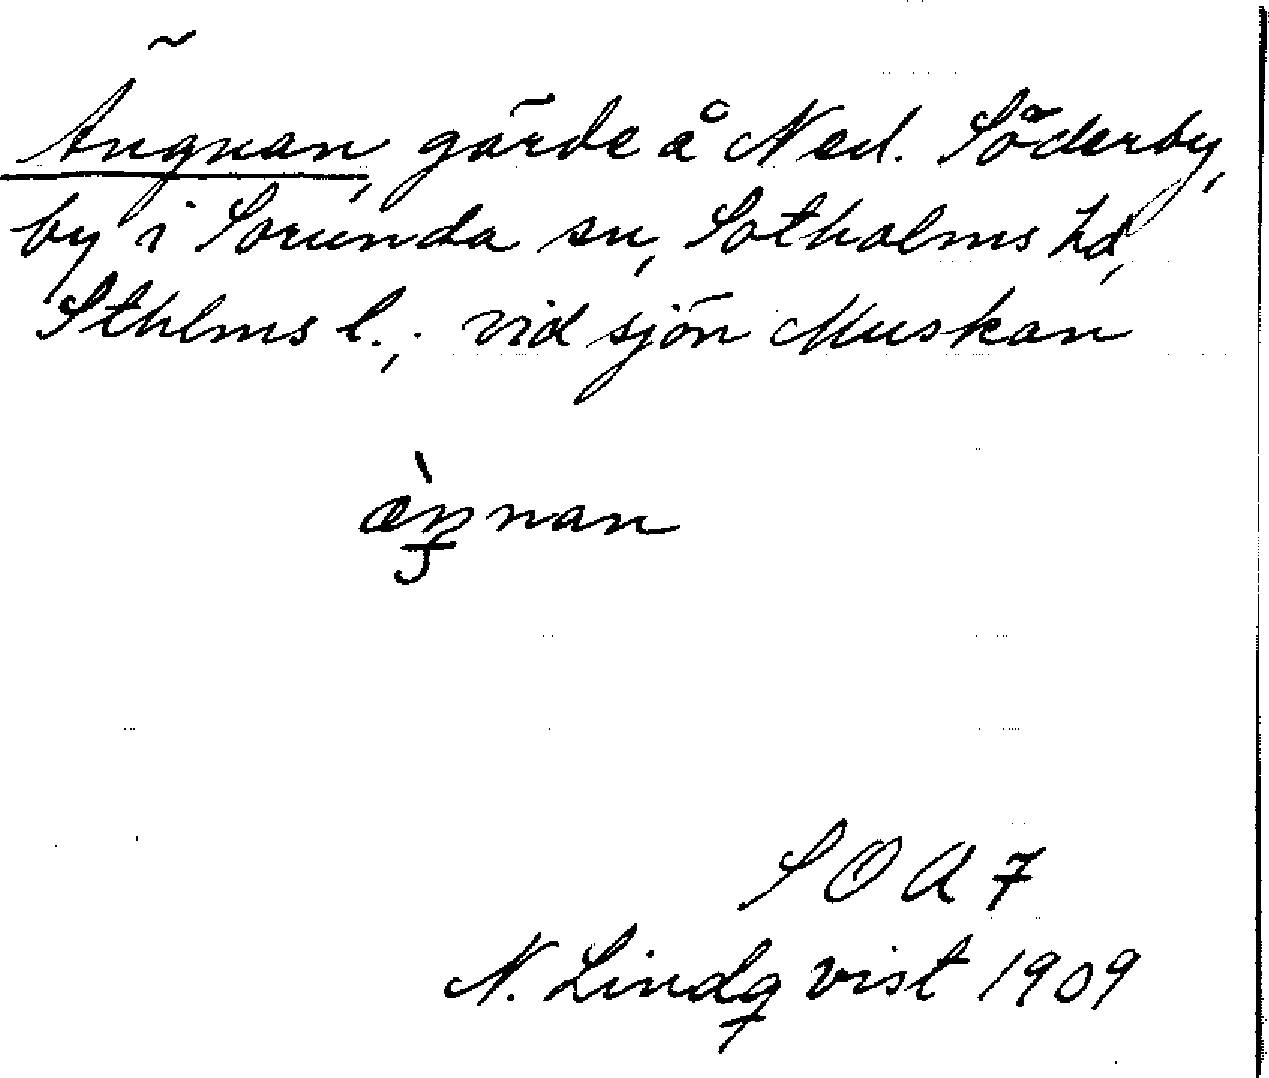 Ängnan, gärde å Ned. Söderby,
by i Sorunda sn, Sotholms hd,
Sthlms l.; vid sjön Muskan
æ̀ŋnan
SOA 7
N. Lindqvist 1909